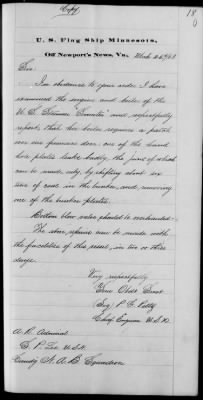 Copy
18
0
U. S. Flag Ship Minnesota,
Off Newport's News, Va.
Sir
In obedience to your order I have
examined the engine and boiler of the
U. S. Steamer and respectfully
report, that the boiler requires a patch
over one furnace door, one of the hand
hole plates leaks badly, the joint of which
can be made, only, by shifting about six
tons of coal in the bunker, and removing
one of the bunker plates.
Bottom blow valve should be overhauled.
The above repairs can be made with
the facilities of this vessel, in two or three
days.
Very respectfully
Your Obdt Servt
Chief Engineer U.S.N.
A. R. Admiral
S. P. Lee U.S.N.
Comdg N. A. B. Squadron